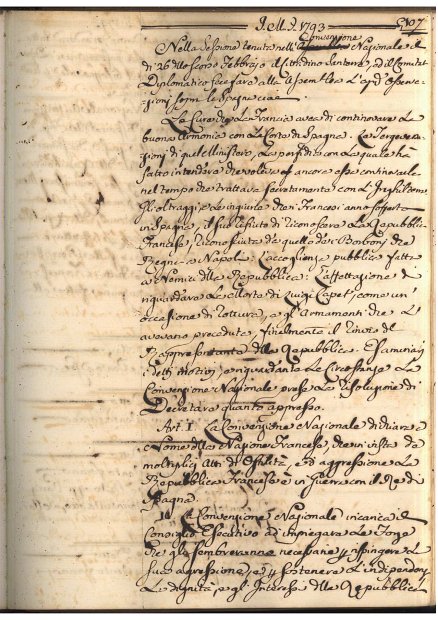 J. M. J. 1793
Nella Sessione tenuta nell' Convenzione Nazionale il
di 26 dello scorso Febbrajo il Cittadino Santerre, ed il Comitato
Diplomatico fece fare alla Assemblea l'
sopra la Spagna
La Cura che la Francia avea di continovare la
buona Armonia con la Corte di Spagna. Le Tergiversa
zioni di quel Ministero, la perfidia con la quale ha
fatto intendere che voleva essere ancora continovale
nel tempo che trattava secretamente con l'Inghilterra
Gli oltraggi, e le ingiurie che i Francesi anno sofferto
in Spagna, il suo rifiuto di riconoscere la Repubblica
Francese, riconosciuta da quello de' Borboni che
Regna a Napoli. L'accoglienza pubblica fatta
a Nemici della Repubblica: l'affettazione di
riguardare la Morte di Luigi Capet, come un'
occasione di rottura, e gl'Armamenti che l'
avevano preceduta, finalmente il rinvio del
Rappresentante della Repubblica. Esaminati
i detti motivi, e riguardante la Circostanza la
Convenzione Nazionale prese la risoluzione di
Decretare quanto appresso.
Art. I. La Convenzione Nazionale dichiara a
Nome della Nazione Francese, che in vista de
moltiplici Atti di Ostilità, ed aggressione la
Repubblica Francese è in Guerra con il Re di
Spagna.
La Convenzione Nazionale incarica il
Consiglio Esecutivo di impiegare le Forze
che gli sembreranno necessarie rispingere la
sua aggressione, e sostenere l'indipendenza
la dignità e gli Interessi della Repubblica